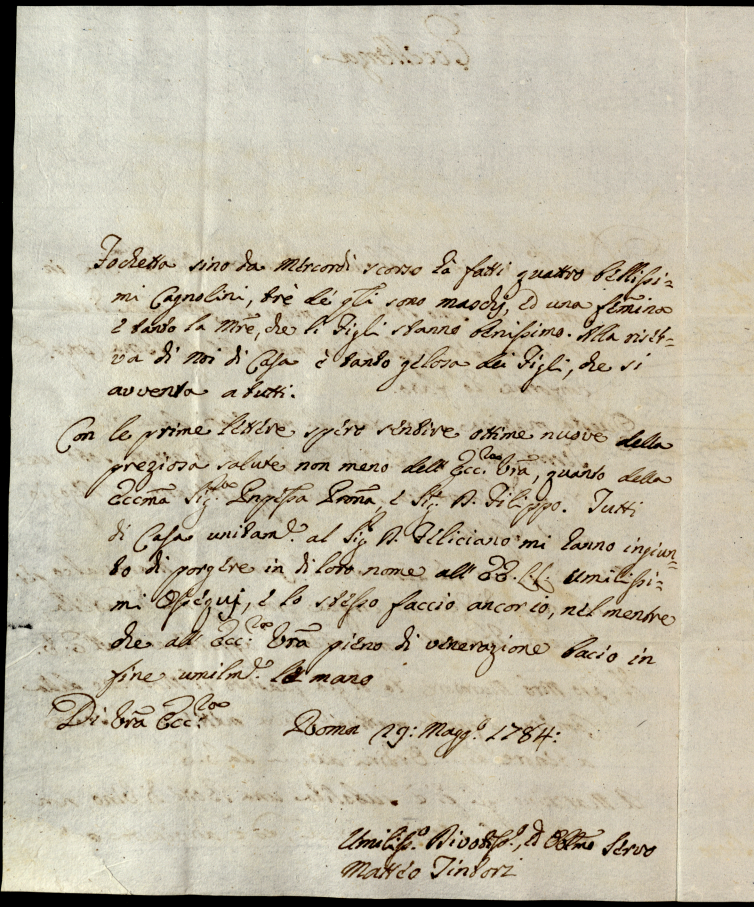 Fochetta sino da Mercordi scorso hà fatti quattro bellissi-
mi Cagnolini, trè de gli sono maschj, ed una femina
e tanto la Mře, che li Figli stanno benissimo. Alla riser-
va di Noi di Casa è tanto gelosa dei Figli, che si
avventa a tutti.
Con le prime lettere spero sentire ottime nuove della
preziosa salute non meno dell'Ecc.za Vřa, quanto della
Eccma Sig.ra Pnpissa Prona, e Sig.r D. Filippo. Tutti
di Casa unitam.e al Sig.r D. Feliciano mi hanno ingiun-
to di porgere in di loro nome all'EE. LL. umilissi-
mi Ossequj, e lo stesso faccio ancor io, nel mentre
che all'Ecc.za Vřa pieno di venerazione bacio in
fine umilm.e le mano
Di Vřa Ecc.za Roma 29: Magg.o 1784:
Umiliss.o Divotiss.o, ed Obblmo Servo
Matteo Tintori